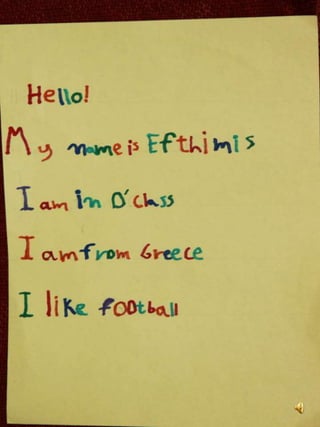 Hello!
My name is Efthimis
I am in D' class
I am from Greece
I like football